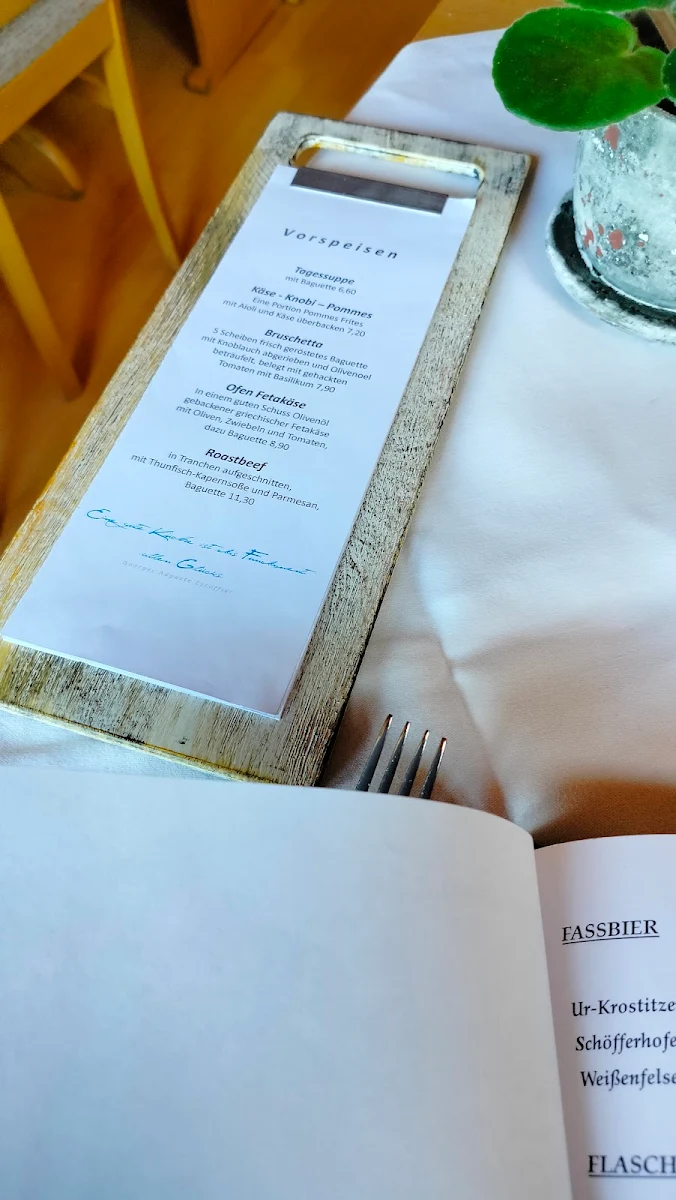 Vorspeisen
Tagessuppe
mit Baguette 6,60
Käse - Knobi – Pommes
Eine Portion Pommes Frites
mit Aioli und Käse überbacken 7,20
Bruschetta
5 Scheiben frisch geröstetes Baguette
mit Knoblauch abgerieben und Olivenoel
beträufelt, belegt mit gehackten
Tomaten mit Basilikum 7,90
Ofen Fetakäse
in einem guten Schuss Olivenöl
gebackener griechischer Fetakäse
mit Oliven, Zwiebeln und Tomaten,
dazu Baguette 8,90
Roastbeef
in Tranchen aufgeschnitten,
mit Thunfisch-Kapernsoße und Parmesan,
Baguette 11,30
Eine gute Küche ist das Fundament
allen Glücks
Auguste Escoffier
FASSBIER
Ur-Krostitze
Schöfferhofe
Weißenfelse
FLASCH